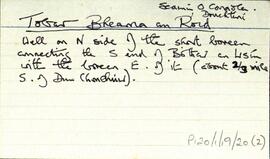 Seamus Ó Conaola.
Tober Breanna an Road
Well on N side of the short boreen
connecting the S end of Bóthar an
with the boreen E. of it (about 2/3 mile
S. of Dun Chonchuir).
P120/1/9/20(2)